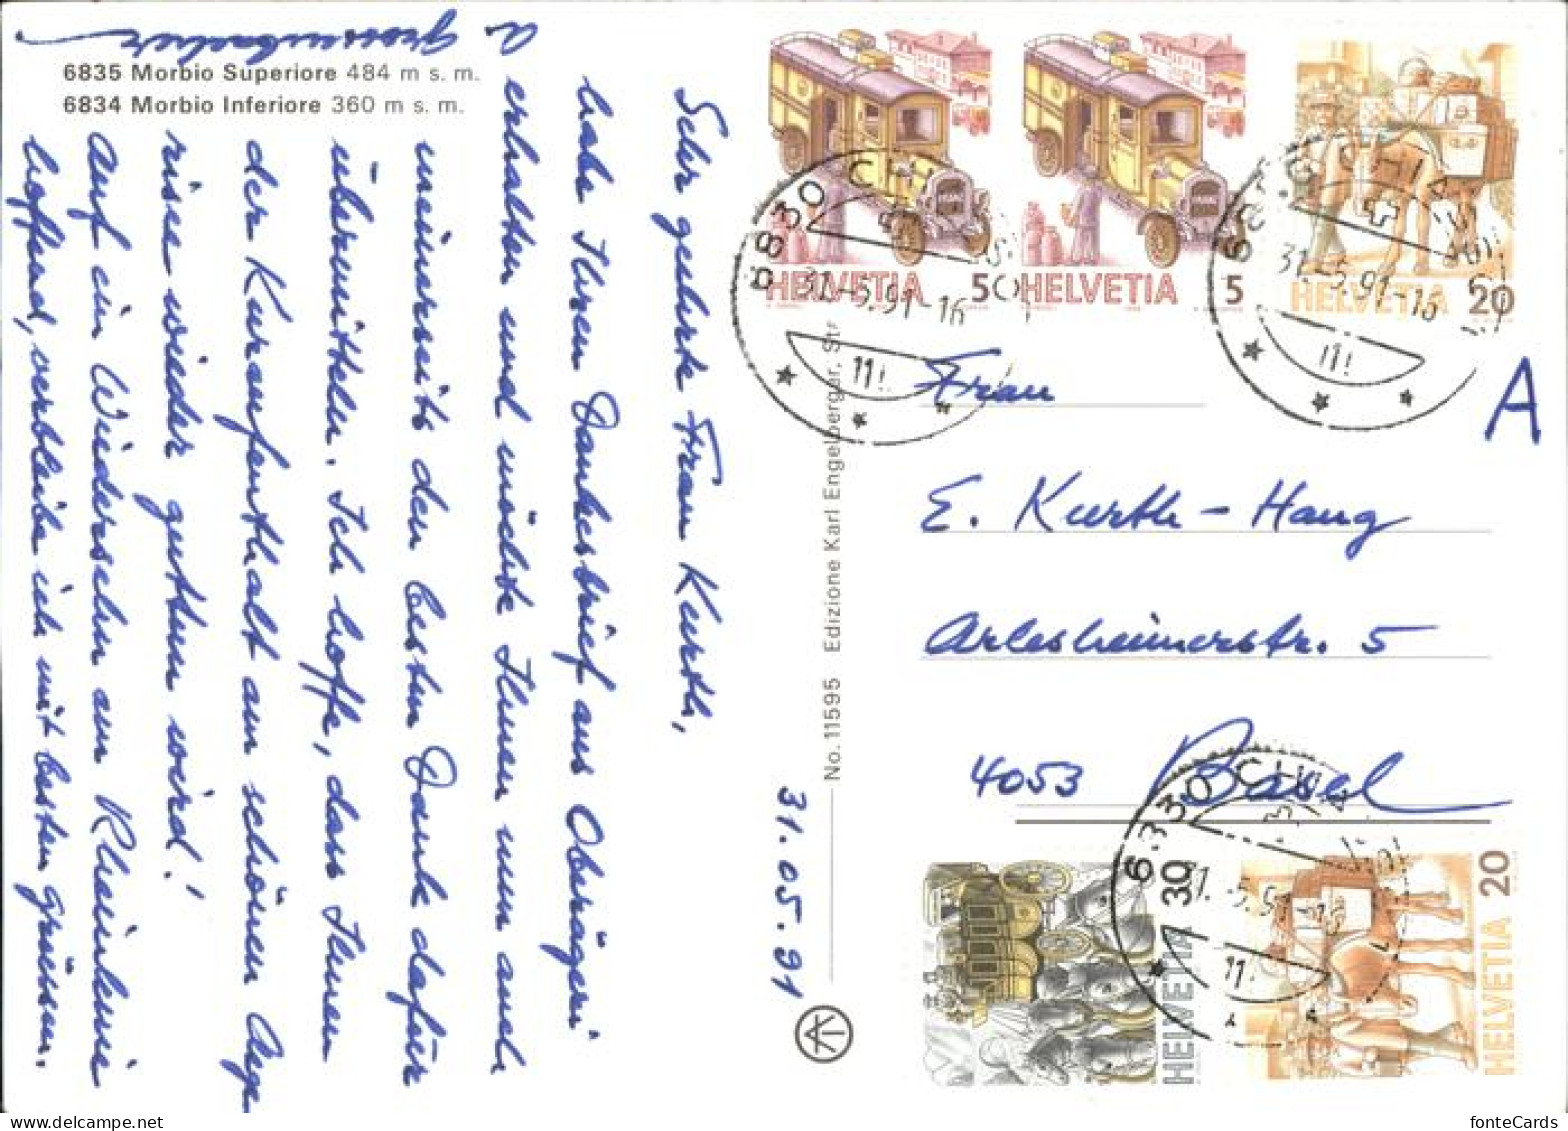 6835 Morbio Superiore 484 m s. m.
6834 Morbio Inferiore 360 m s. m.
31.05.91
Sehr geehrte Frau Kurth,
habe Ihren Dankesbrief aus Oberägeri
erhalten und möchte Ihnen nun auch
meinerseits den besten Dank dafür
übermitteln. Ich hoffe, dass Ihnen
der Kuraufenthalt am schönen Aege
risee wieder guttun wird!
Auf ein Wiedersehn am Rheinknie
hoffend, verbleibe ich mit besten Grüssen.
No. 11595 Edizione Karl Engelberger,
HELVETIA 5
HELVETIA 5
HELVETIA 20
6830 CHIASSO
31.-5.91-16
6830 CHIASSO
31.-5.91-16
A
Frau
E. Kurth-Haug
Arlesheimerstr. 5
4053 Basel
HELVETIA 30
HELVETIA 20
fonteCards